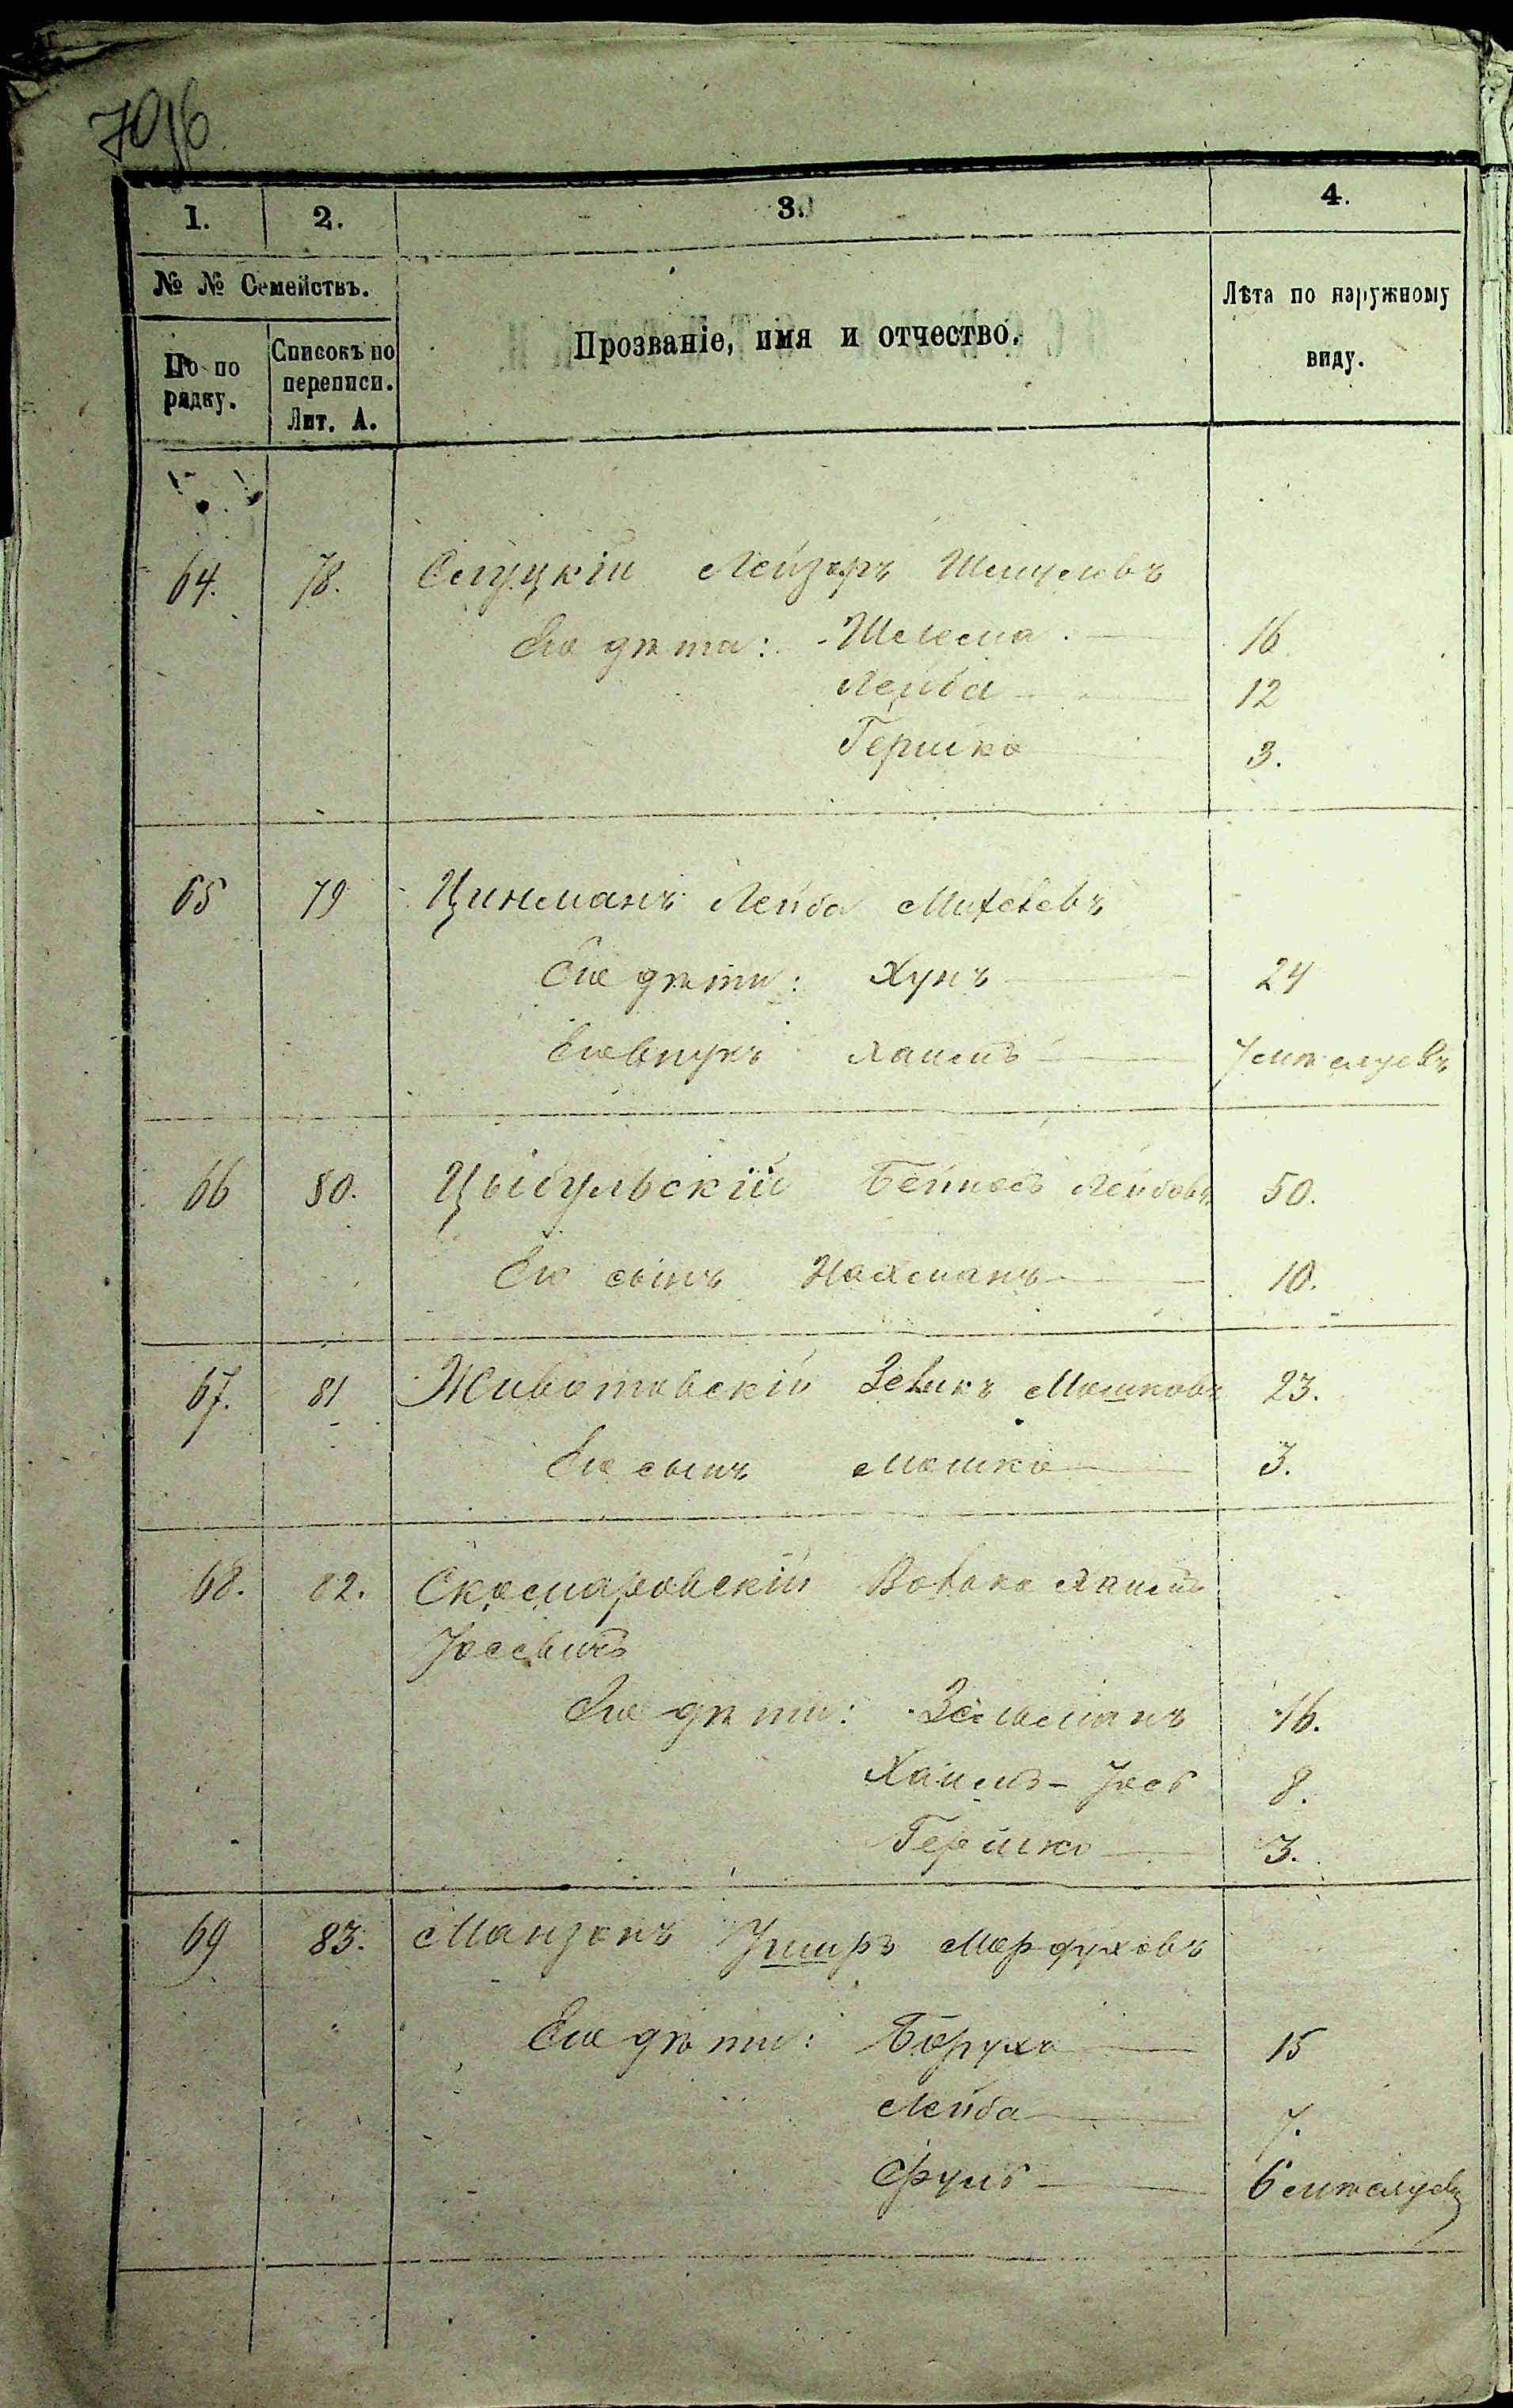 70 об
1. 2. 3. 4.
№ № Семействъ.
По по рядку.
Списокъ по переписи. Лит. А.
Прозваніе, имя и отчество.
Лѣта по наружному виду.
64. 78. Слуцкій Лейзеръ Шмулевъ
Его дѣти: Шлема 16
Лейба 12
Гершко 3.
65 79 Цинманъ Лейба Михелевъ
Его дѣти: Хунъ 24
Его внукъ Хаимъ 7 мѣсяцевъ
66 80. Цыбульскій Бейнесъ Лейбовъ 50.
Его сынъ Нахманъ 10.
67. 81 Животовскій Зеликъ Мошковъ 23.
Его сынъ Мошко 3.
68. 82. Скомаровскій Волько Хаимъ
Іосевичъ
Его дѣти: Зельманъ 16.
Хаимъ-Іось 8.
Гершко 3.
69 83. Манзонъ Ушеръ Мордуховъ
Его дѣти: Борухъ 15
Лейба 7.
Сруль 6 мѣсяцевъ